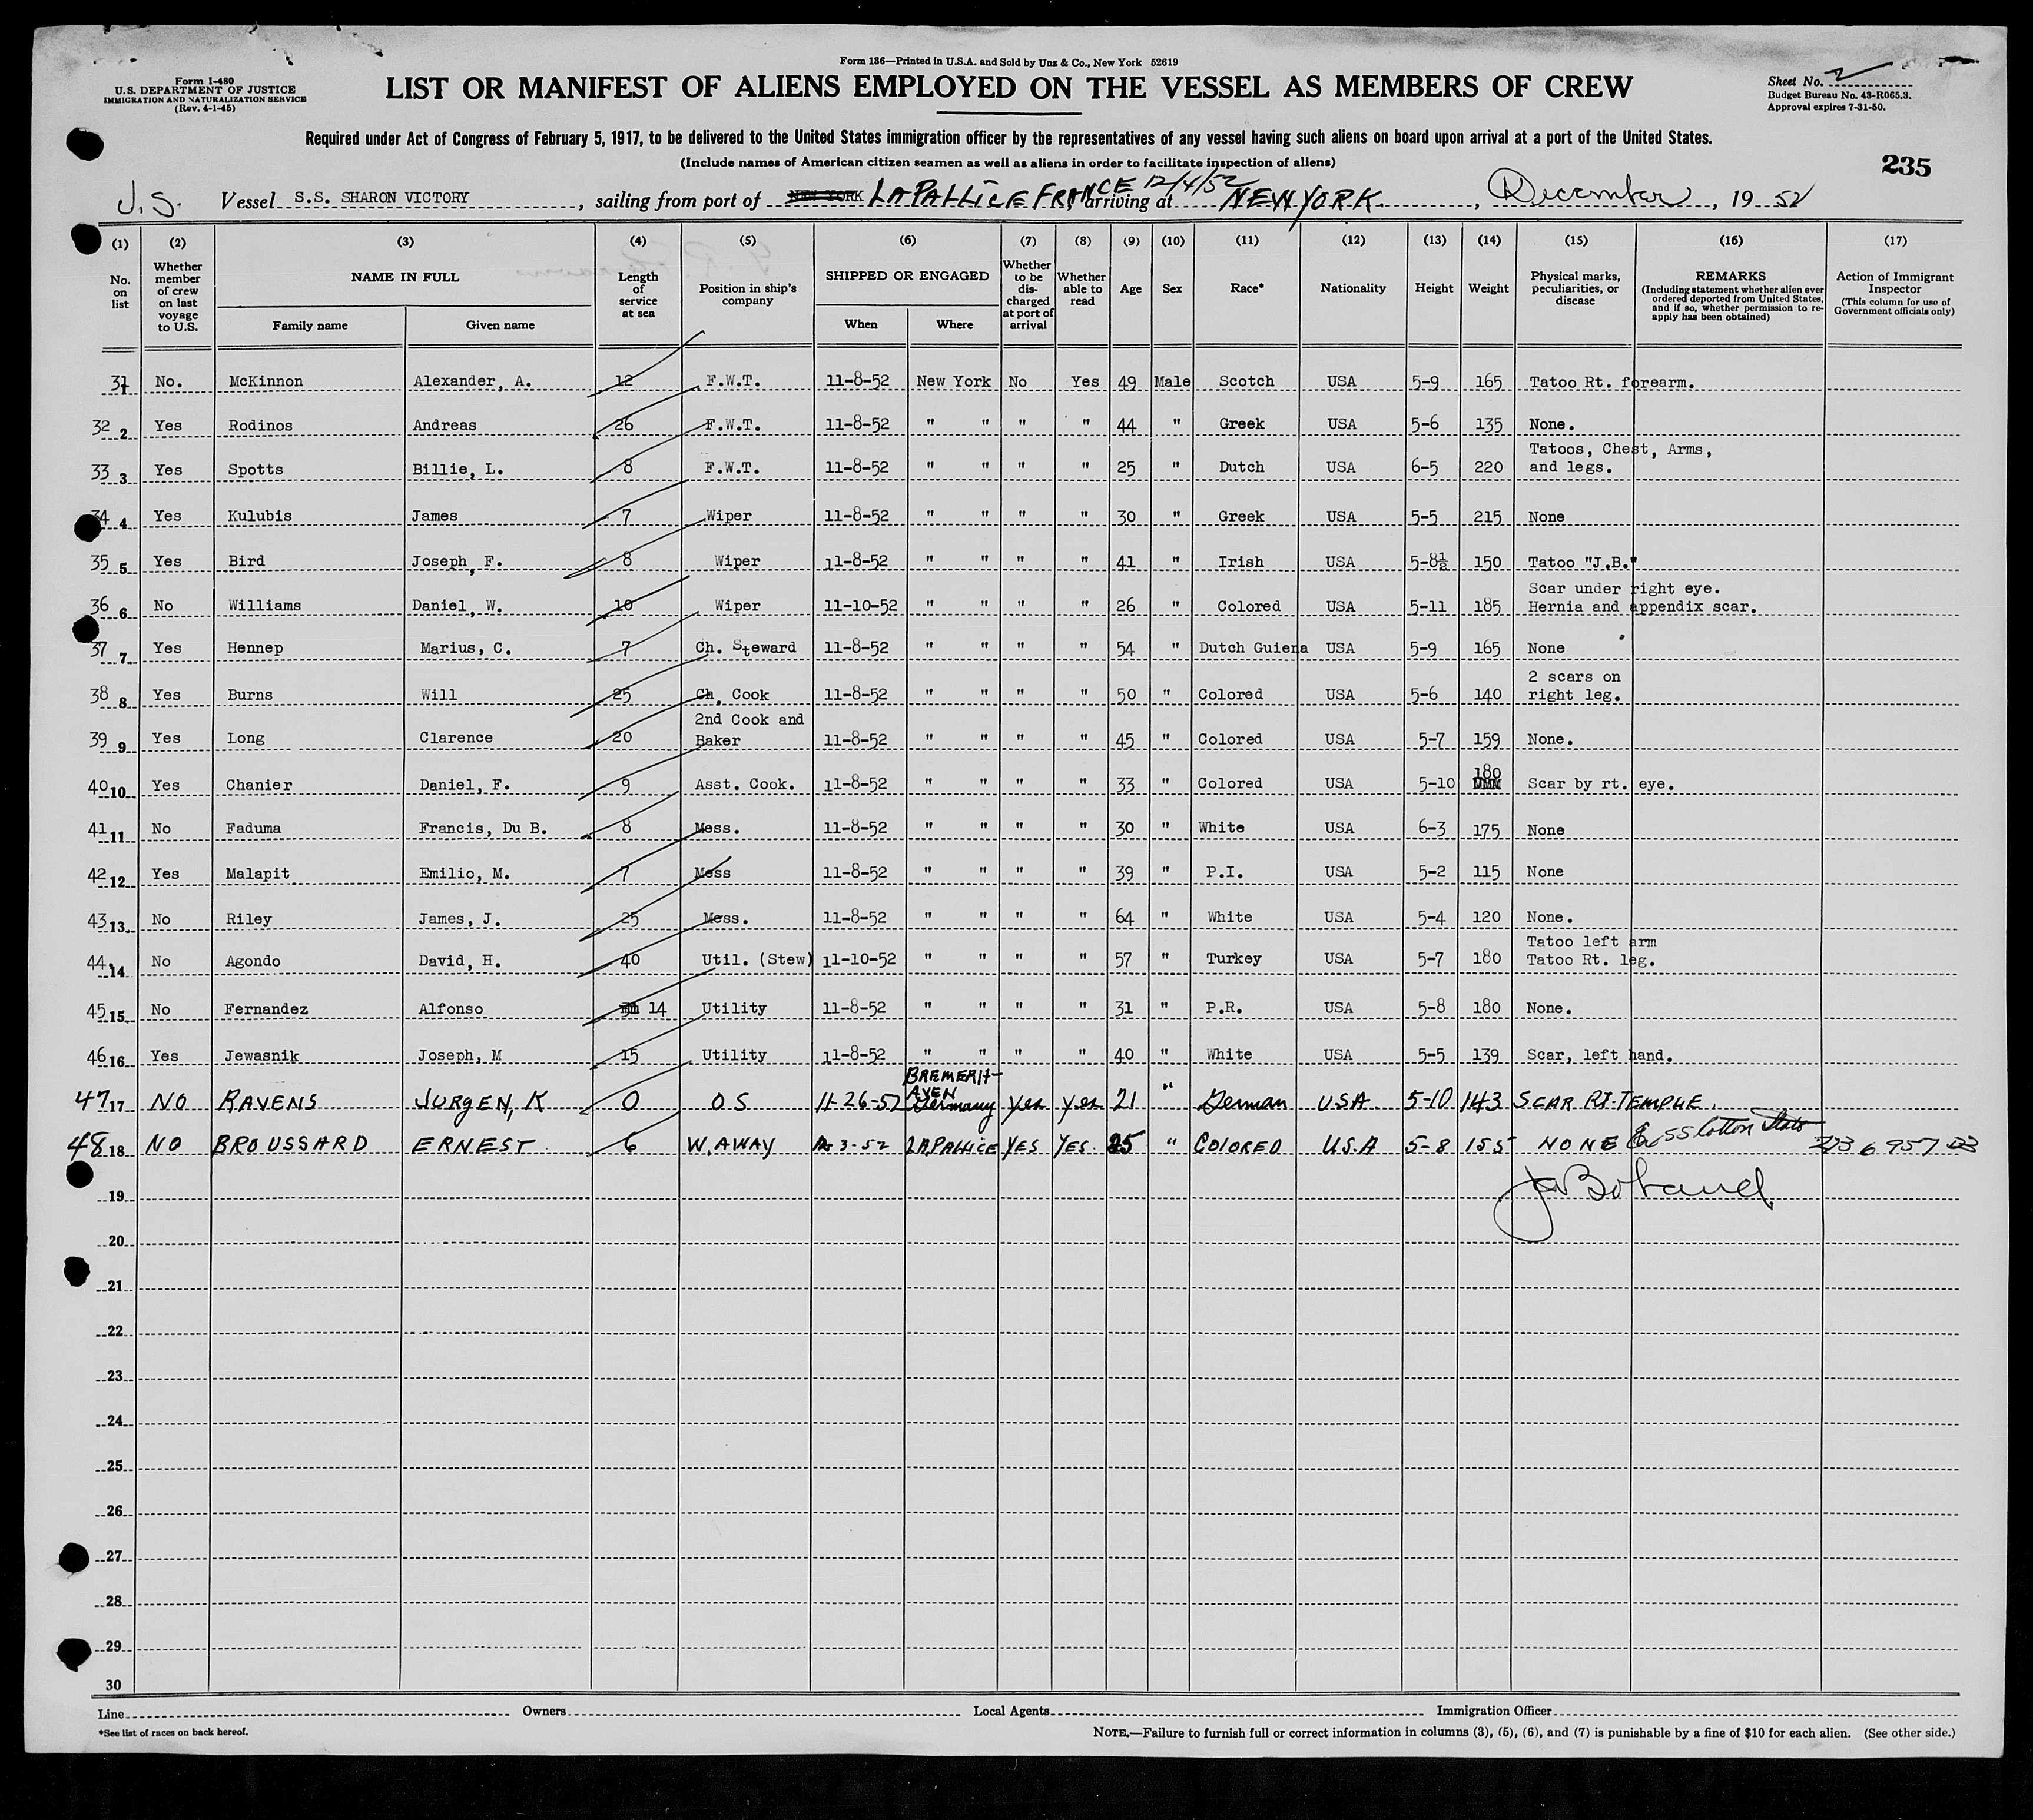 Form 136—Printed in U.S.A. and Sold by Unz & Co., New York 52619
Form I-480
U.S. DEPARTMENT OF JUSTICE
IMMIGRATION AND NATURALIZATION SERVICE
(Rev. 4-1-45)
LIST OR MANIFEST OF ALIENS EMPLOYED ON THE VESSEL AS MEMBERS OF CREW
Sheet No. 2
Budget Bureau No. 43-R065.3.
Approval expires 7-31-50.
Required under Act of Congress of February 5, 1917, to be delivered to the United States immigration officer by the representatives of any vessel having such aliens on board upon arrival at a port of the United States.
(Include names of American citizen seamen as well as aliens in order to facilitate inspection of aliens)
235
U.S. Vessel S.S. SHARON VICTORY, sailing from port of NEW YORK LAPALLICE FRANCE 12/4/52 arriving at NEW YORK, December, 1952
(1) (2) (3) (4) (5) (6) (7) (8) (9) (10) (11) (12) (13) (14) (15) (16) (17)
No. on list
Whether member of crew on last voyage to U.S.
NAME IN FULL
Family name
Given name
Length of service at sea
Position in ship's company
SHIPPED OR ENGAGED
When
Where
Whether to be discharged at port of arrival
Whether able to read
Age
Sex
Race*
Nationality
Height
Weight
Physical marks, peculiarities, or disease
REMARKS
(Including statement whether alien ever ordered deported from United States, and if so, whether permission to re-apply has been obtained)
Action of Immigrant Inspector
(This column for use of Government officials only)
31 No. McKinnon Alexander, A. 12 F.W.T. 11-8-52 New York No Yes 49 Male Scotch USA 5-9 165 Tatoo Rt. forearm.
32 2 Yes Rodinos Andreas 26 F.W.T. 11-8-52 " " " " 44 " Greek USA 5-6 135 None.
33 3 Yes Spotts Billie, L. 8 F.W.T. 11-8-52 " " " " 25 " Dutch USA 6-5 220 Tatoos, Chest, Arms, and legs.
34 4 Yes Kulubis James 7 Wiper 11-8-52 " " " " 30 " Greek USA 5-5 215 None
35 5 Yes Bird Joseph, F. 8 Wiper 11-8-52 " " " " 41 " Irish USA 5-8½ 150 Tatoo "J.B."
36 6 No Williams Daniel, W. 10 Wiper 11-10-52 " " " " 26 " Colored USA 5-11 185 Scar under right eye. Hernia and appendix scar.
37 7 Yes Hennep Marius, C. 7 Ch. Steward 11-8-52 " " " " 54 " Dutch Guiena USA 5-9 165 None
38 8 Yes Burns Will 25 Ch. Cook 11-8-52 " " " " 50 " Colored USA 5-6 140 2 scars on right leg.
39 9 Yes Long Clarence 20 2nd Cook and Baker 11-8-52 " " " " 45 " Colored USA 5-7 159 None.
40 10 Yes Chanier Daniel, F. 9 Asst. Cook. 11-8-52 " " " " 33 " Colored USA 5-10 180 Scar by rt. eye.
41 11 No Faduma Francis, Du B. 8 Mess. 11-8-52 " " " " 30 " White USA 6-3 175 None
42 12 Yes Malapit Emilio, M. 7 Mess 11-8-52 " " " " 39 " P.I. USA 5-2 115 None
43 13 No Riley James, J. 25 Mess. 11-8-52 " " " " 64 " White USA 5-4 120 None.
44 14 No Agondo David, H. 40 Util. (Stew) 11-10-52 " " " " 57 " Turkey USA 5-7 180 Tatoo left arm Tatoo Rt. leg.
45 15 No Fernandez Alfonso 14 Utility 11-8-52 " " " " 31 " P.R. USA 5-8 180 None.
46 16 Yes Jewasnik Joseph, M 15 Utility 11-8-52 " " " " 40 " White USA 5-5 139 Scar, left hand.
47 17 NO RAVENS JURGEN, K 0 OS 11-26-52 BREMERHAVEN Germany yes yes 21 " German USA 5-10 143 SCAR RT. TEMPLE.
48 18 NO BROUSSARD ERNEST 6 W.AWAY 12-3-52 LAPALLICE YES YES 25 " COLORED U.S.A 5-8 155 NONE Ex SS Cotton State
19
20
21
22
23
24
25
26
27
28
29
30
Line Owners Local Agents Immigration Officer
*See list of races on back hereof.
NOTE.—Failure to furnish full or correct information in columns (3), (5), (6), and (7) is punishable by a fine of $10 for each alien. (See other side.)